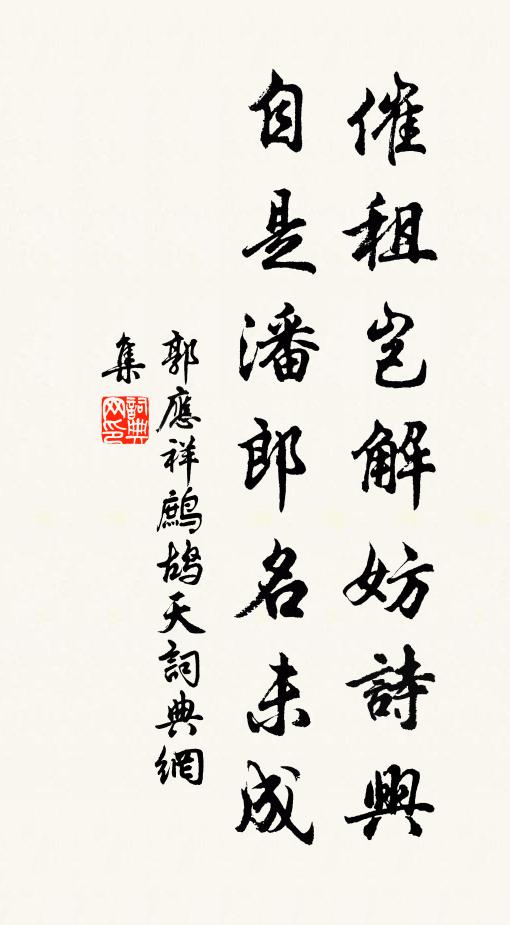 催租岂解妨詩興
自是潘郎名未成
郭應祥鷓鴣天詞典網
集
詞典網印